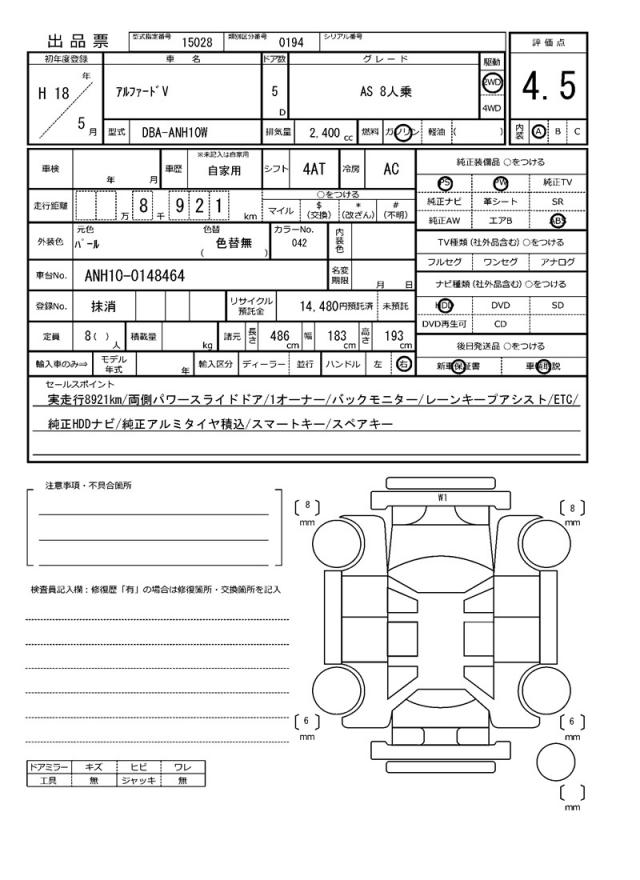 出品票 型式指定番号 15028 類別区分番号 0194 シリアル番号
評価点
4.5
内装 A B C
初年度登録 車名 ドア数 グレード 駆動
H 18 年 5 月 アルファードV 5 D AS 8人乗 2WD
4WD
型式 DBA-ANH10W 排気量 2,400 cc 燃料 ガソリン 軽油 ( )
車検 年 月 車歴 ※未記入は自家用 自家用 シフト 4AT 冷房 AC
走行距離 万 8 千 9 2 1 km ○をつける
マイル $(交換) *(改ざん) #(不明)
外装色 元色 パール 色替 ( 色替無 ) カラーNo. 042 内装色
車台No. ANH10-0148464 名変期限 月 日
登録No. 抹消 リサイクル預託金 14,480円預託済 未預託
定員 8( ) 人 積載量 kg 諸元 長さ 486 cm 幅 183 cm 高さ 193 cm
輸入車のみ⇒ モデル年式 年 輸入区分 ディーラー 並行 ハンドル 左 右
純正装備品 ○をつける
PS PW 純正TV
純正ナビ 革シート SR
純正AW エアB ABS
TV種類 (社外品含む) ○をつける
フルセグ ワンセグ アナログ
ナビ種類 (社外品含む) ○をつける
HDD DVD SD
DVD再生可 CD
後日発送品 ○をつける
新車保証書 車輌取説
セールスポイント
実走行8921km/両側パワースライドドア/1オーナー/バックモニター/レーンキープアシスト/ETC/
純正HDDナビ/純正アルミタイヤ積込/スマートキー/スペアキー
注意事項・不具合箇所
検査員記入欄：修復歴「有」の場合は修復箇所・交換箇所を記入
ドアミラー キズ ヒビ ワレ
工具 無 ジャッキ 無
W1
8 mm
8 mm
6 mm
6 mm
mm